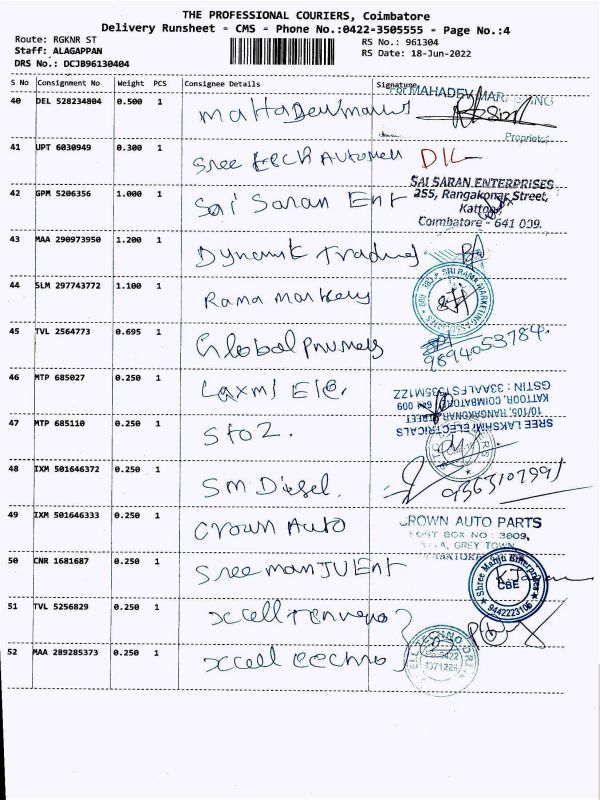 THE PROFESSIONAL COURIERS, Coimbatore
Delivery Runsheet - CMS - Phone No.:0422-3505555 - Page No.:4
Route: RGKNR ST
RS No.: 961304
Staff: ALAGAPPAN
RS Date: 18-Jun-2022
DRS No.: DCJB96130404
S No Consignment No Weight PCS Consignee Details Signature
For MAHADEV MARKETING
40 DEL 528234804 0.500 1 Mahadev
Proprietor
41 UPT 6030949 0.300 1 Sree tech
42 GPM 5206356 1.000 1 Sai Saran Ent
SAI SARAN ENTERPRISES
255, Rangakonar Street,
Kattoor
Coimbatore - 641 009.
43 MAA 290973950 1.200 1 Dynamik Trading
44 SLM 297743772 1.100 1 Rama
SRI RAMA MARKETING
45 TVL 2564773 0.695 1 Global
9894053784.
46 MTP 685027 0.250 1 Laxmi Ele.
GSTIN : 33AALFS1535M1ZZ
KATTOOR, COIMBATORE 641 009
10/105, RANGAKONAR STREET
SREE LAKSHMI ELECTRICALS
47 MTP 685110 0.250 1
48 IXM 501646372 0.250 1 Sm Diesel.
49 IXM 501646333 0.250 1 Crown Auto
CROWN AUTO PARTS
POST BOX NO : 3809,
GREY TOWN
50 CNR 1681687 0.250 1 Sree manJU Ent
Shree Manju Enterprises
CBE
9442223106
51 TVL 5256829 0.250 1 xcell
52 MAA 289285373 0.250 1 xcell techno